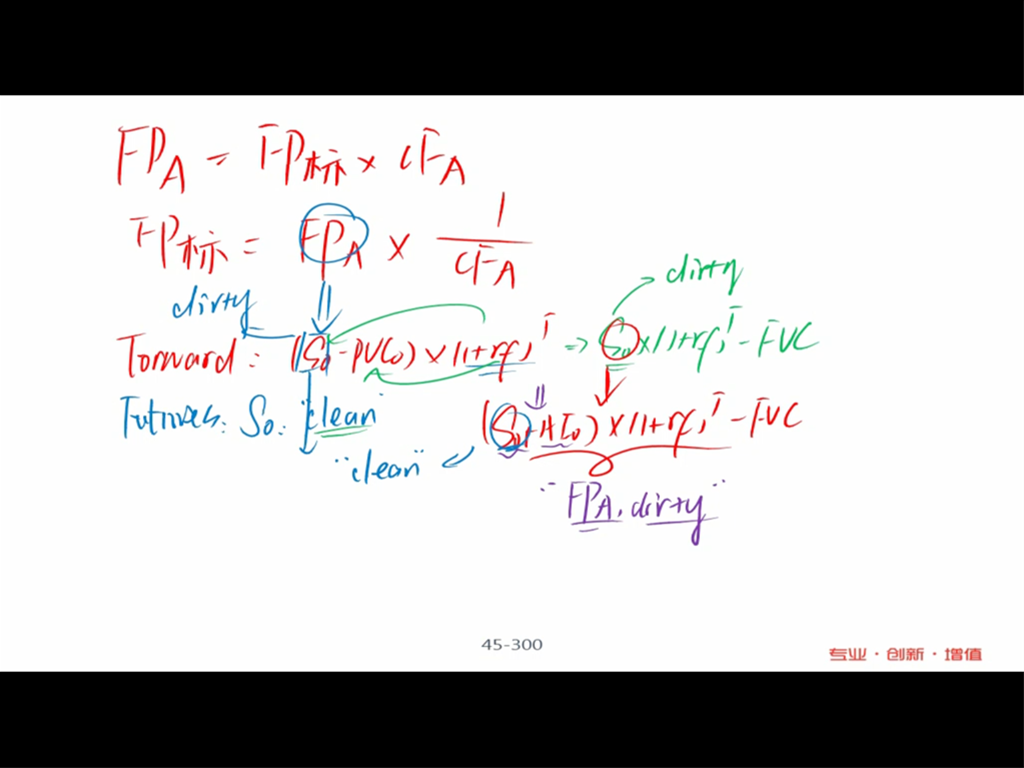 FP_A = FP标 × CF_A
FP标 = FP_A × 1/CF_A
dirty
dirty
Forward: (S₀ - PVC₀) × (1+rf)^T ⇒ S₀ × (1+rf)^T - FVC
Futures: S₀: "clean"
(S₀ + AI₀) × (1+rf)^T - FVC
"clean"
"FP_A, dirty"
45-300
专业·创新·增值